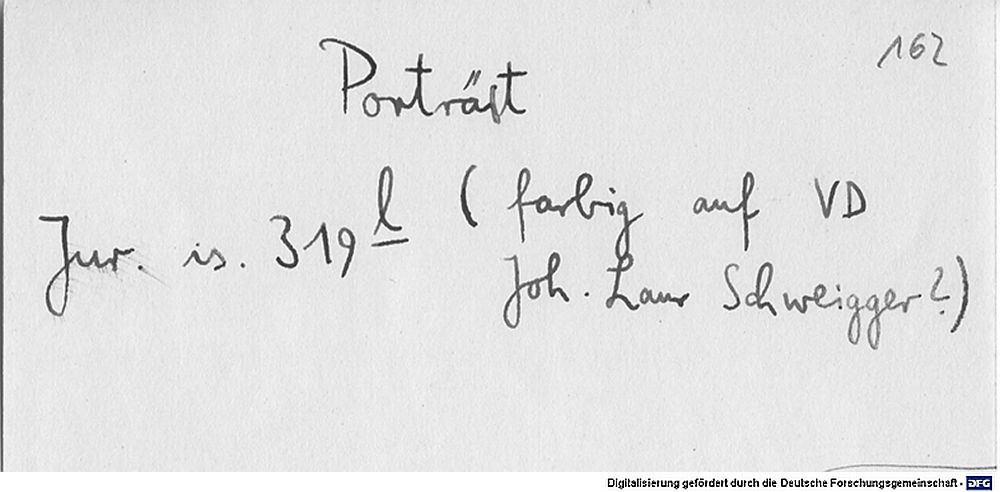 162
Porträt
Jur. is. 319 l (farbig auf VD
Joh. Laur Schweigger?)
Digitalisierung gefördert durch die Deutsche Forschungsgemeinschaft - DFG